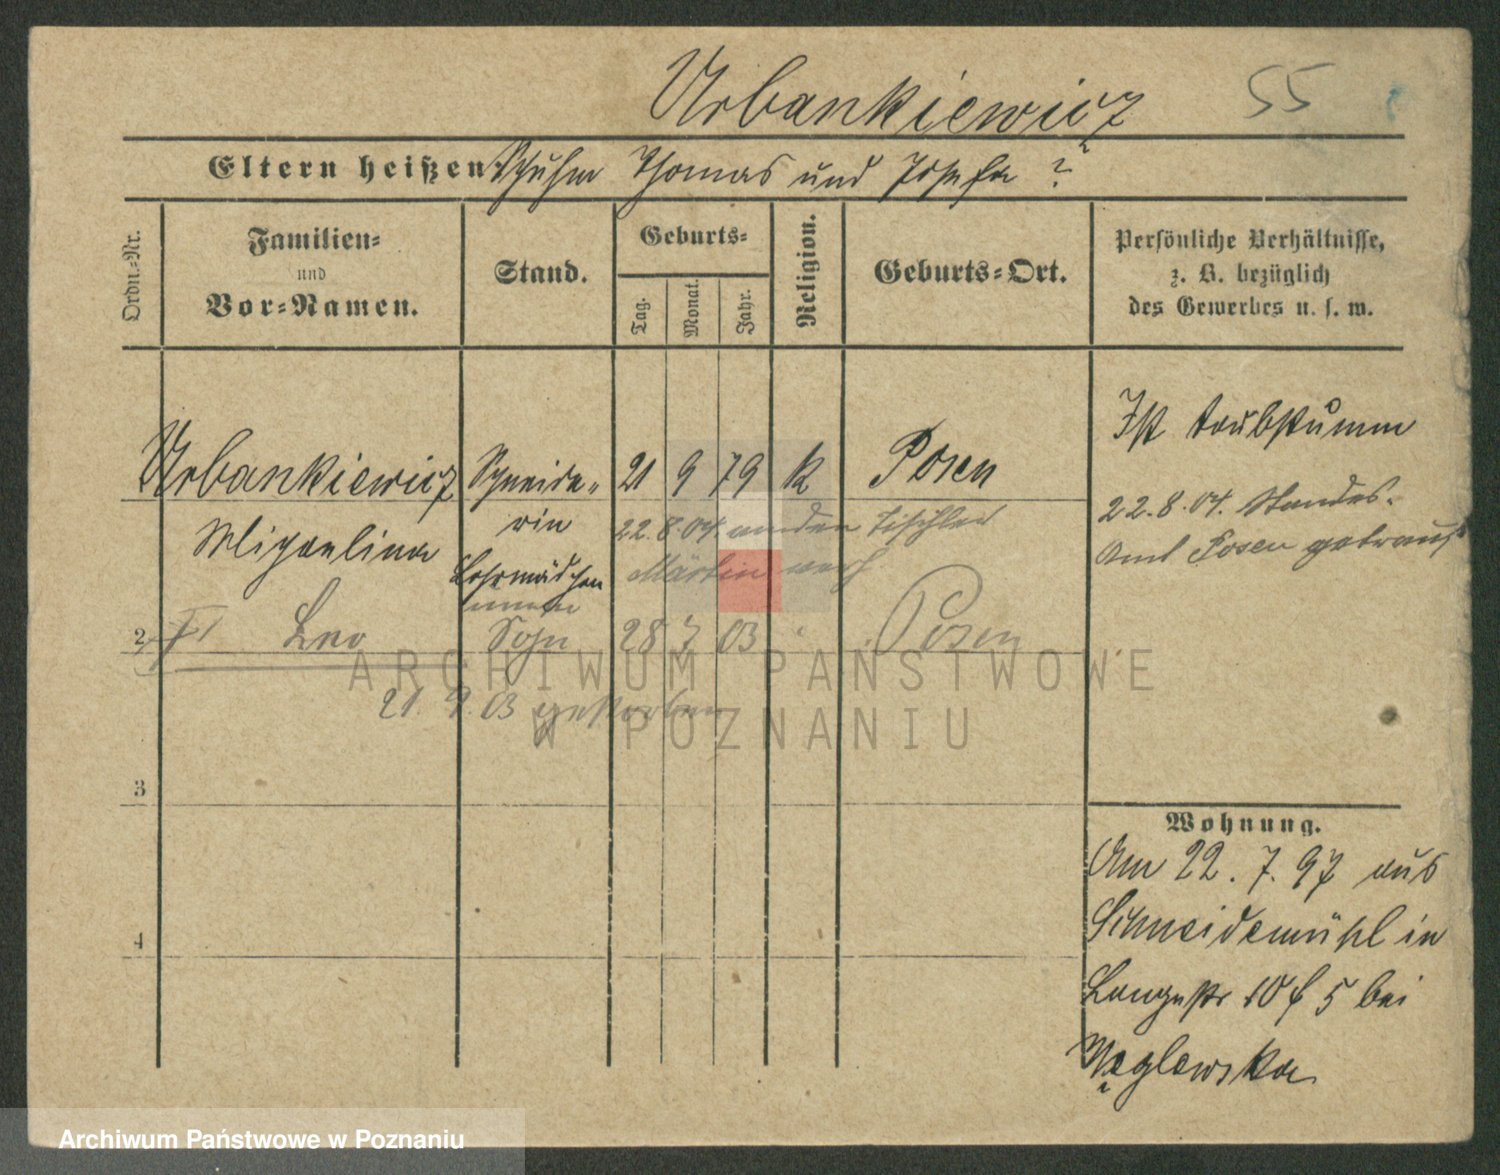 Urbankiewicz 55
Eltern heißen: Schuhm Thomas und Josefa ?
Ordn.-Nr.
Familien-
und
Vor-Namen.
Stand.
Geburts-
Tag.
Monat.
Jahr.
Religion.
Geburts-Ort.
Persönliche Verhältnisse,
z. B. bezüglich
des Gewerbes u. s. w.
Urbankiewicz Schneide- 21 9 79 k Posen
Michaelina rin
22.8.04. an den Tischler
Martin
Lehrmädchen
2 Leo Sohn 28 7 03 Posen
21. 9. 03 gestorben
3
4
Ist taubstumm
22.8.04. Standes-
Amt Posen getraut
Wohnung.
Am 22. 7. 97 aus
Schneidemühl in
Langestr 10 f 5 bei
Węglewska
ARCHIWUM PAŃSTWOWE
W POZNANIU
Archiwum Państwowe w Poznaniu